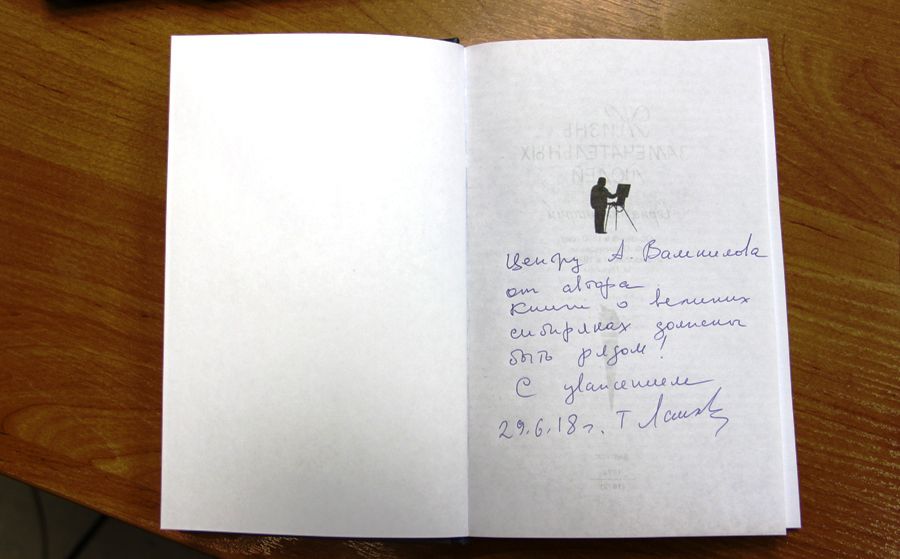 Центру А. Вампилова
от автора
Книги о великих
сибиряках должны
быть рядом!
С уважением
29.6.18 г. Т
ЖИЗНЬ
ЗАМЕЧАТЕЛЬНЫХ
ЛЮДЕЙ